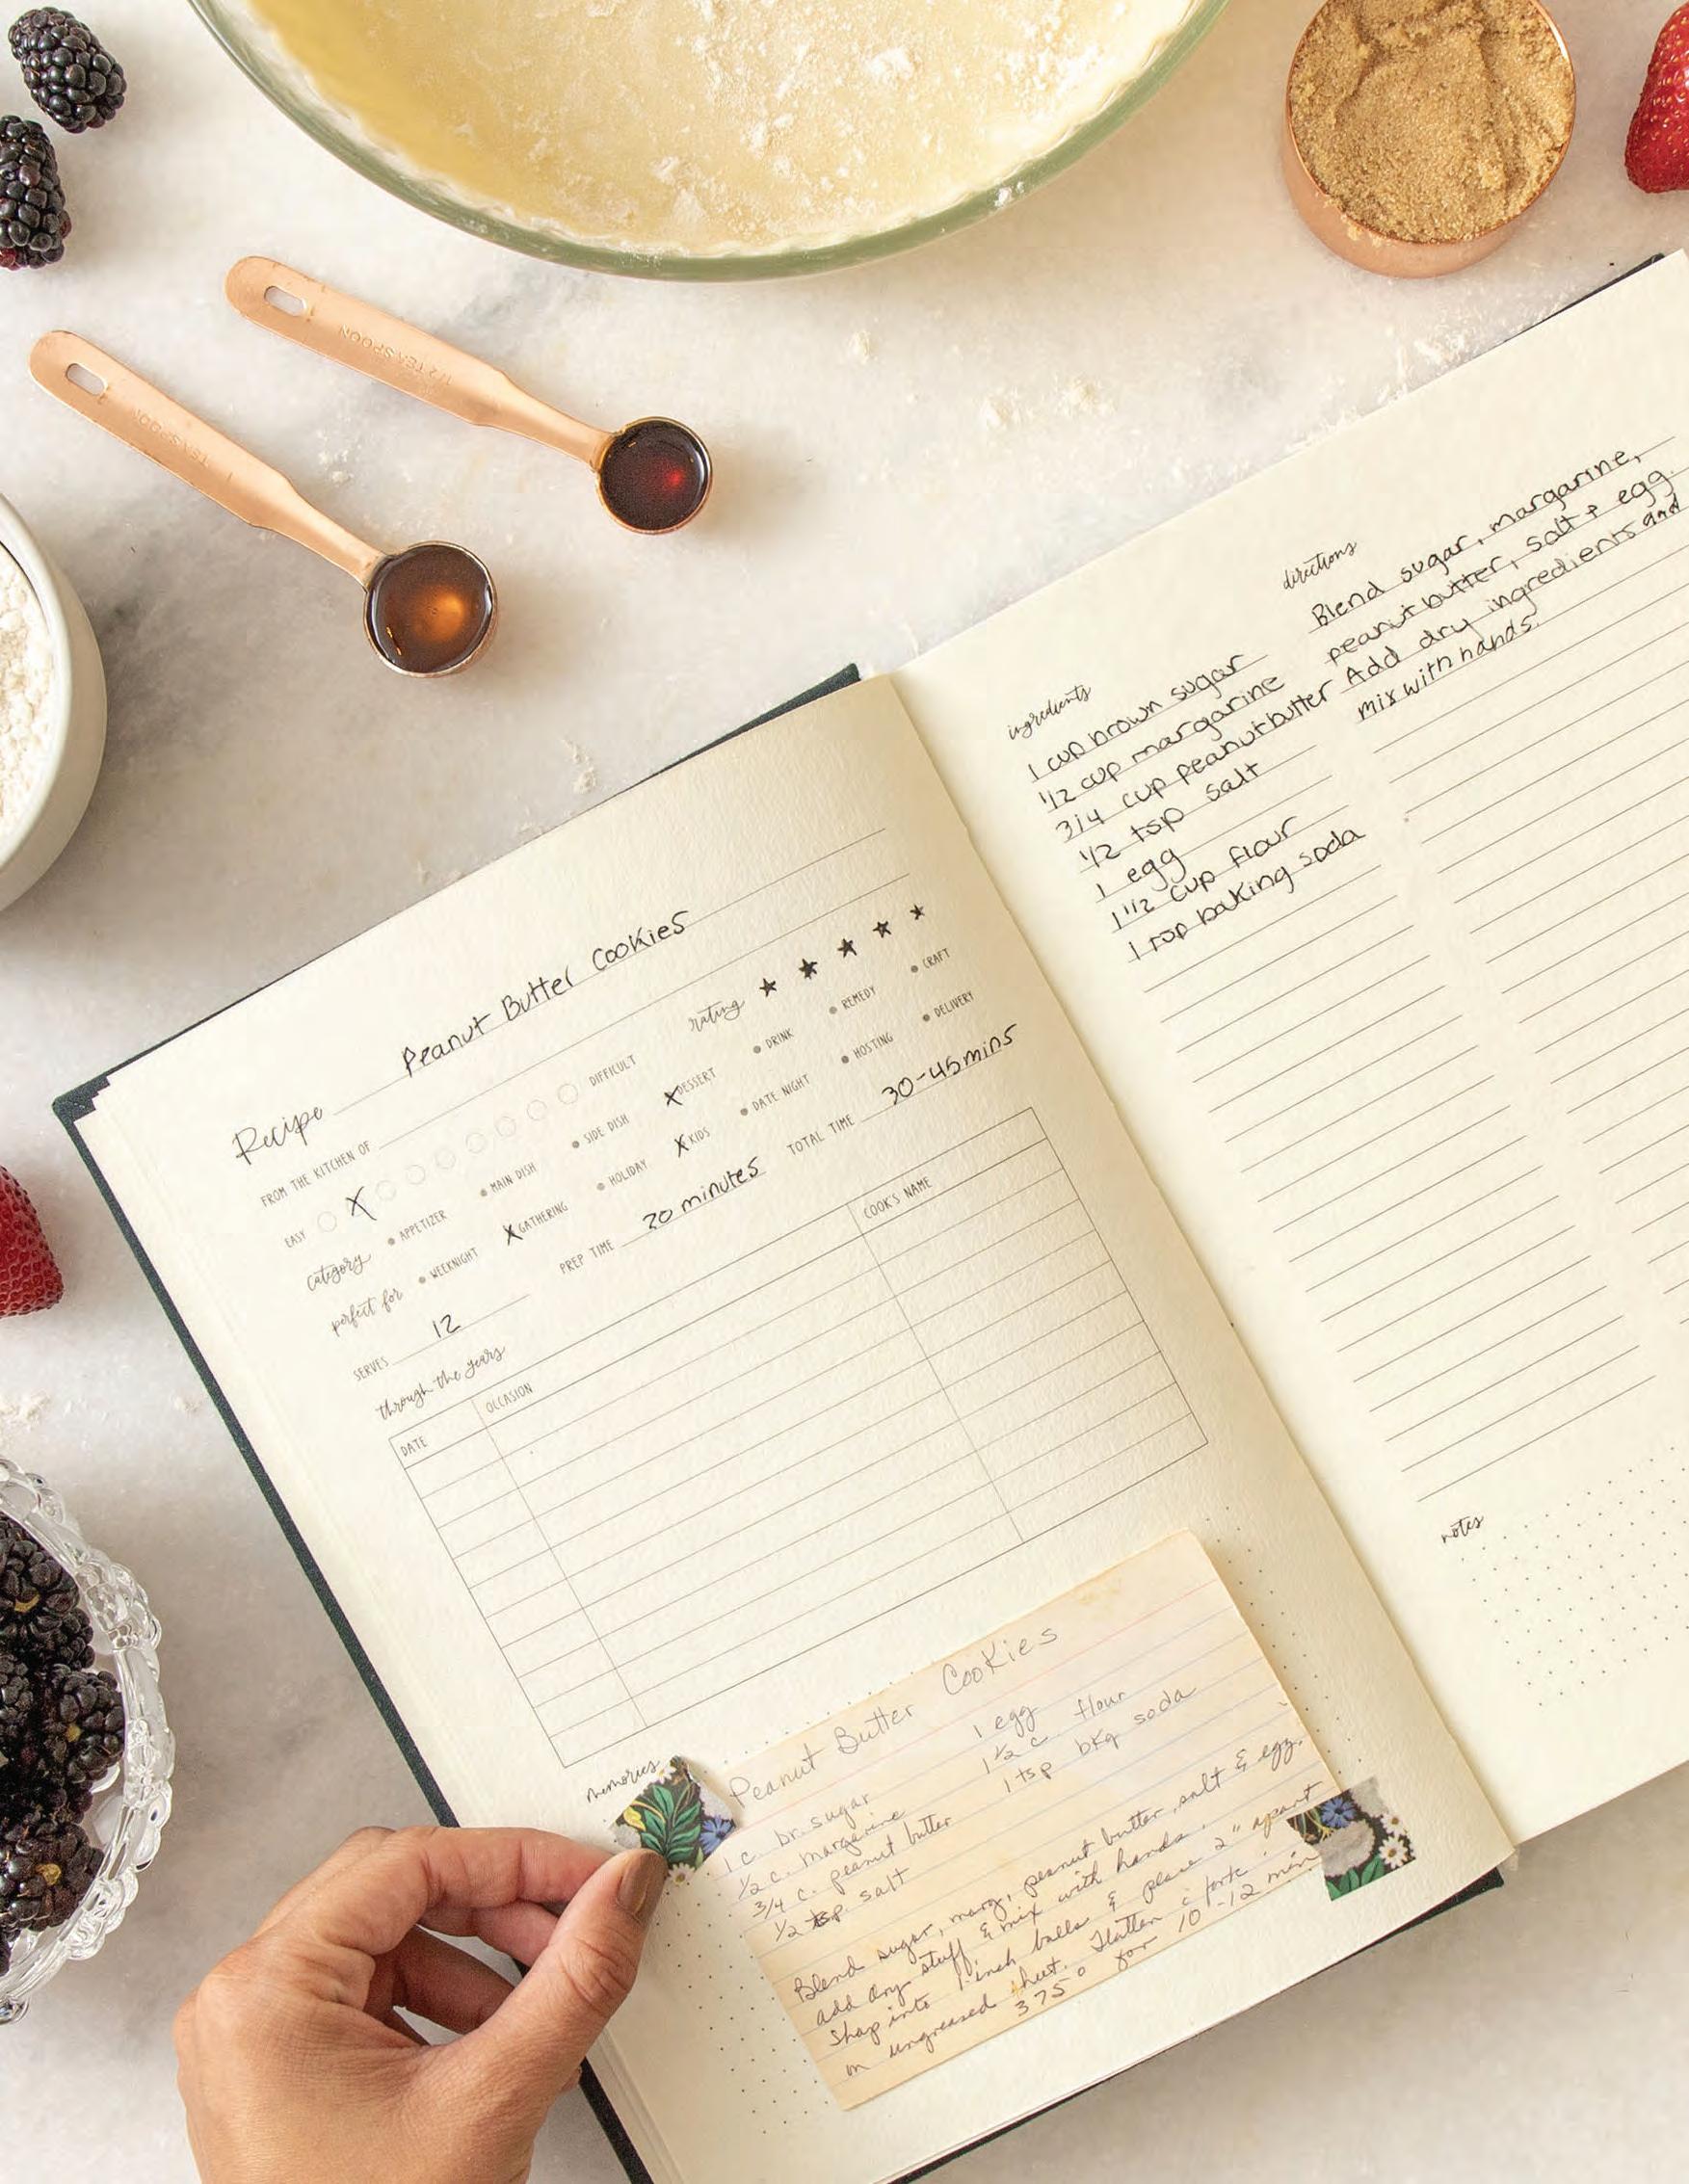 1/2 TEASPOON
1 TEASPOON
Recipe Peanut Butter Cookies
FROM THE KITCHEN OF
EASY X DIFFICULT
rating ★ ★ ★ ★ ★
category • APPETIZER • MAIN DISH • SIDE DISH X DESSERT • DRINK • REMEDY • CRAFT
perfect for • WEEKNIGHT X GATHERING • HOLIDAY X KIDS • DATE NIGHT • HOSTING • DELIVERY
SERVES 12 PREP TIME 20 minutes TOTAL TIME 30-45 mins
through the years
DATE OCCASION COOK'S NAME
memories
Peanut Butter Cookies
1 c. br. sugar
1/2 c. margarine
3/4 c. peanut butter
1/2 tsp. salt
1 egg
1 1/2 c flour
1 tsp bkg soda
Blend sugar, marg, peanut butter, salt & egg.
add dry stuff & mix with hands.
Shap into 1-inch balls & place 2" apart
on ungreased sheet. Flatten c fork.
375° for 10-12 min
ingredients
1 cup brown sugar
1/2 cup margarine
3/4 cup peanut butter
1/2 tsp salt
1 egg
1 1/2 cup flour
1 tsp baking soda
directions
Blend sugar, margarine,
peanut butter, salt + egg.
Add dry ingredients and
mix with hands.
notes